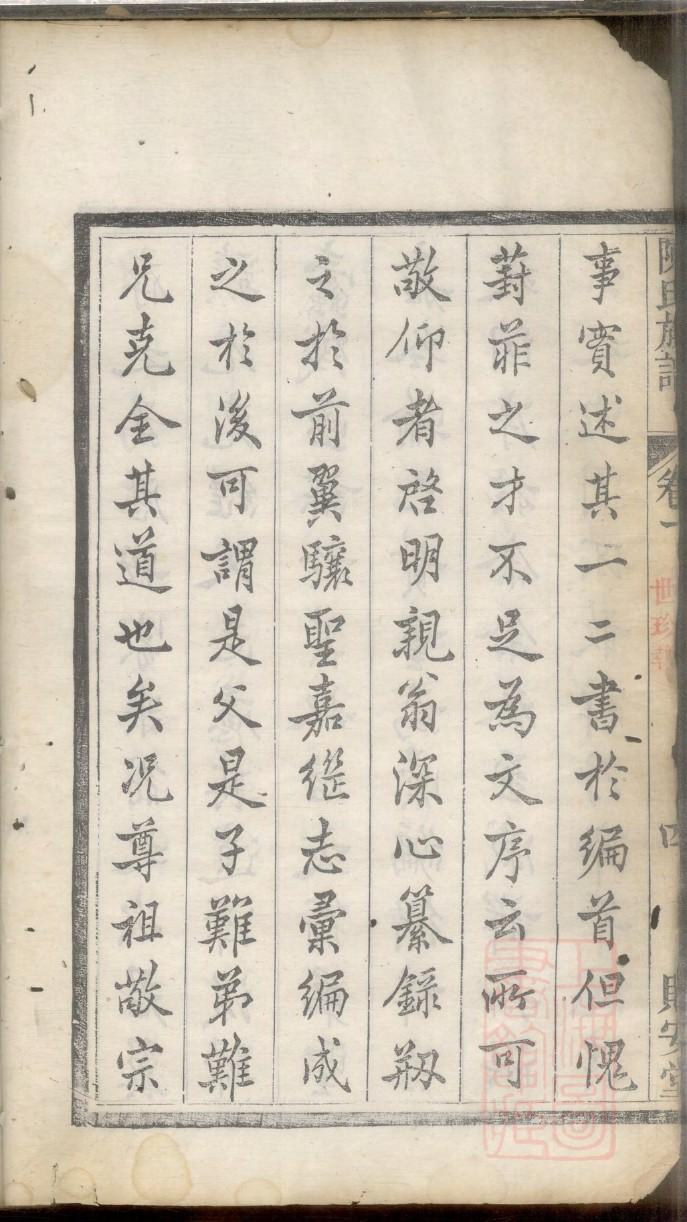 陳氏族譜
卷一
四
貽安堂
事實述其一二書於編首但愧
葑菲之才不足為文序云所可
敬仰者啓明親翁深心纂錄剏
之於前翼驤聖嘉継志彚編成
之於後可謂是父是子難弟難
兄克全其道也矣况尊祖敬宗